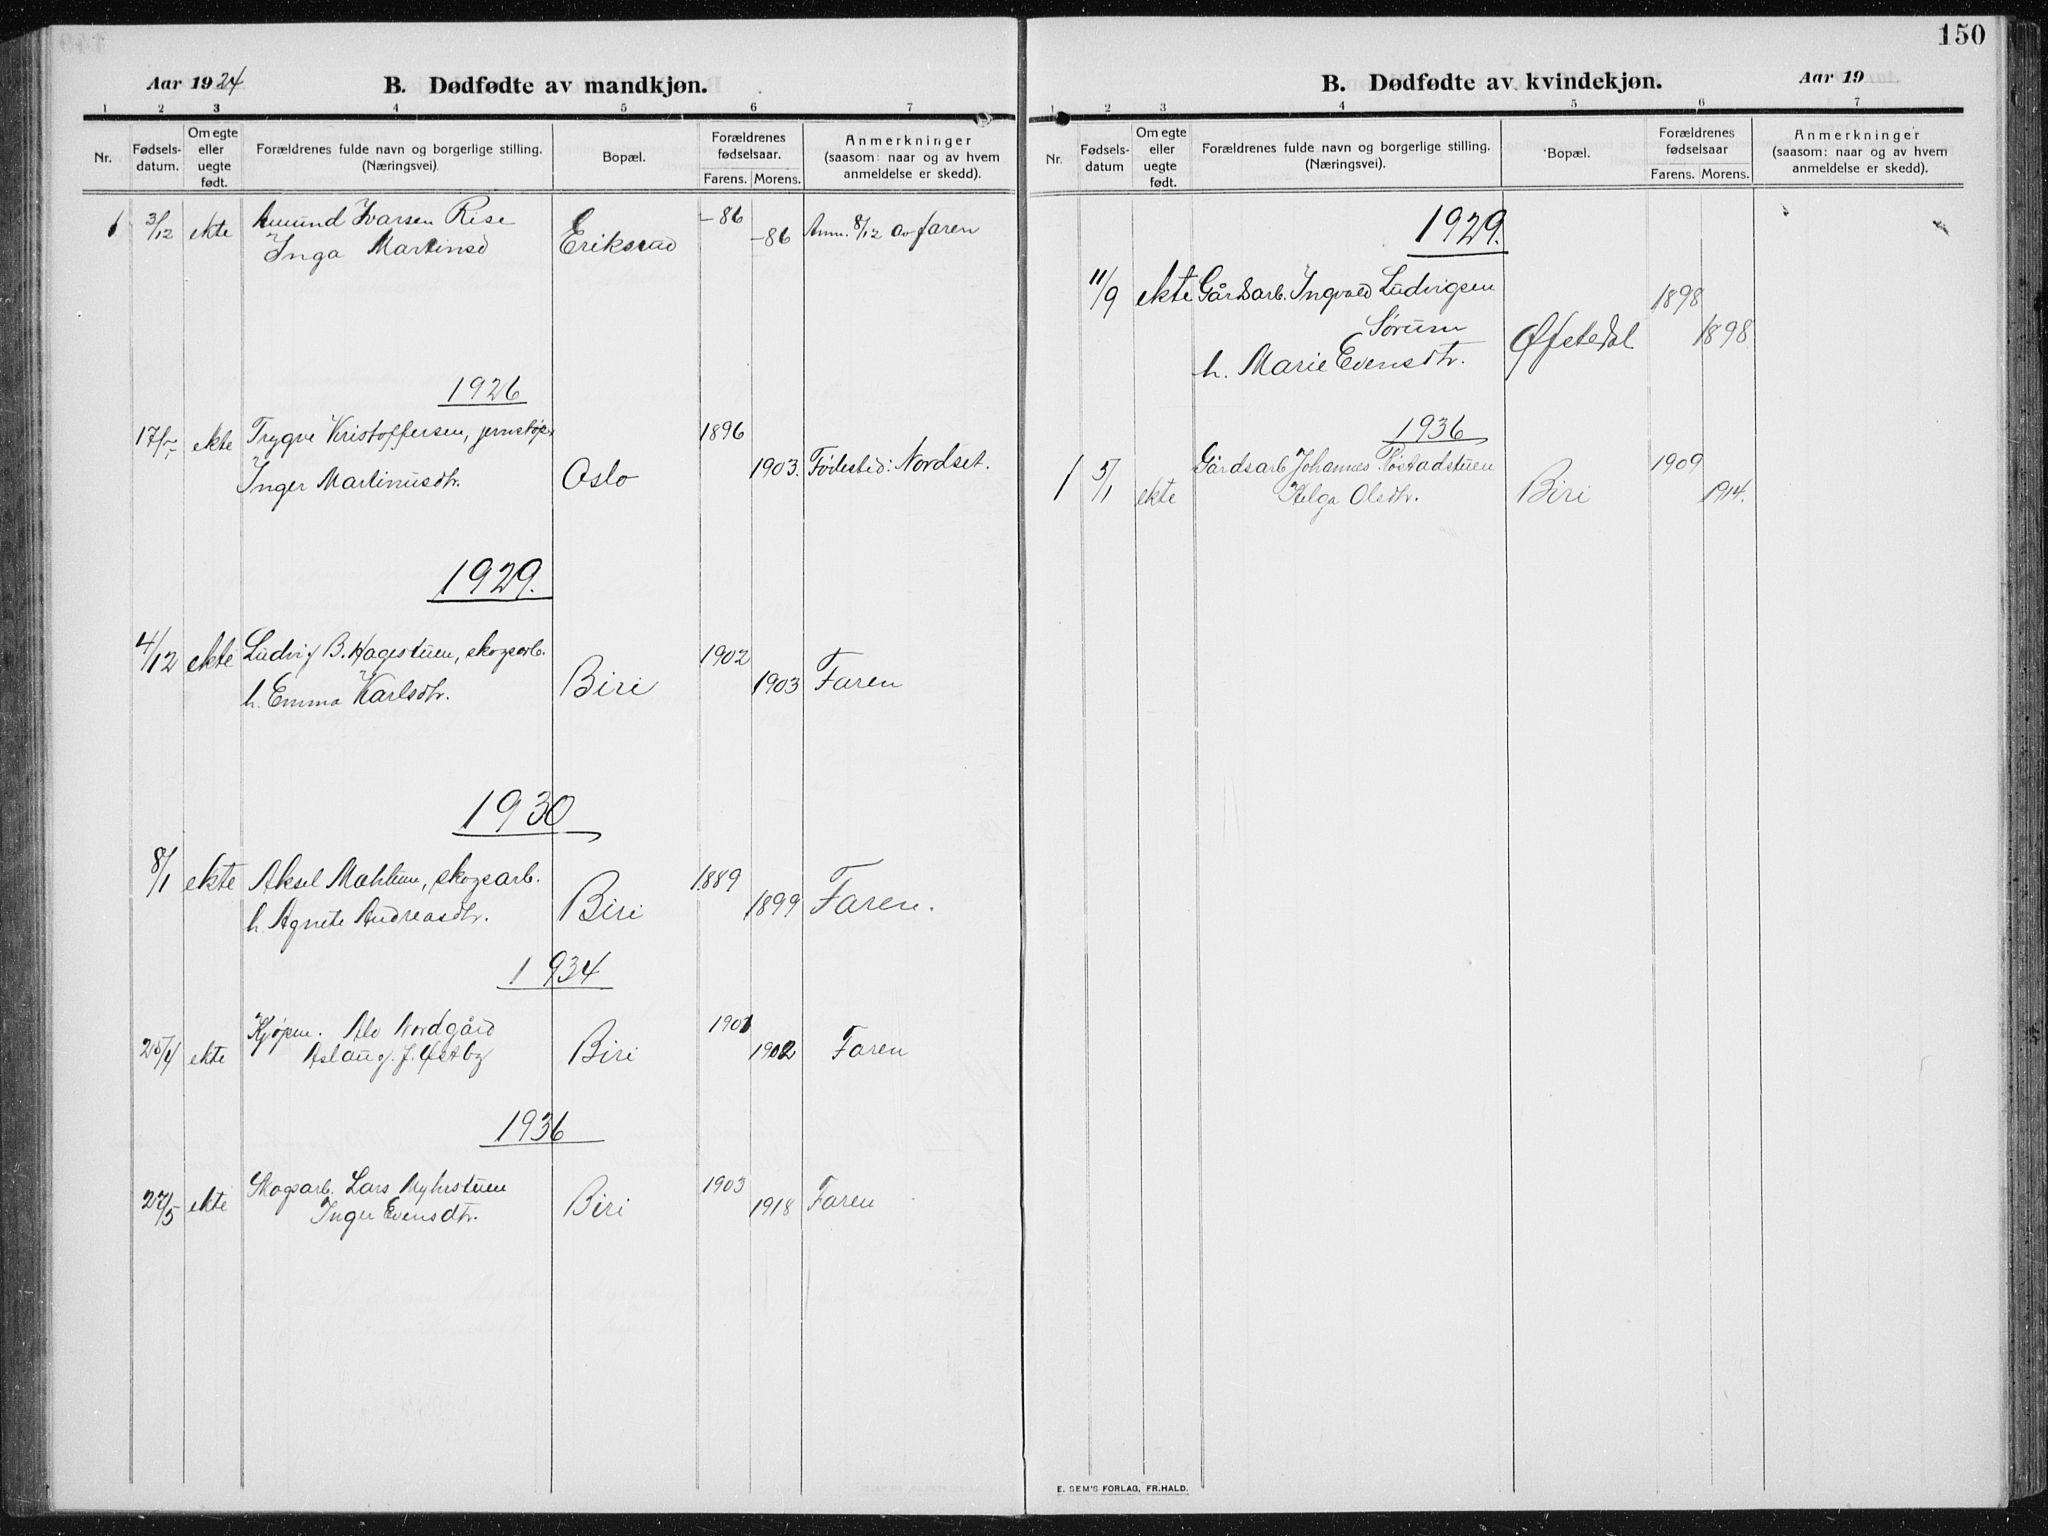 Aar 1924
B. Dødfødte av mandkjøn.
1 2 3 4 5 6 7
Nr.
Fødsels-
datum.
Om egte
eller
uegte
født.
Forældrenes fulde navn og borgerlige stilling.
(Næringsvei).
Bopæl.
Forældrenes
fødselsaar.
Farens. Morens.
Anmerkninger
(saasom: naar og av hvem
anmeldelse er skedd).
1 3/12 ekte Amund Ivarsen Rise Eriksrud -86 Anm. 8/12 av faren
Inga Martinsd -86
1926
17/5 ekte Trygve Kristoffersen, jernstøp. 1896
Inger Martinusdtr. Oslo 1903. Fødested: Nordset.
1929.
4/12 ekte Ludvig B. Hagestuen, skogsarb. 1902
h. Emma Karlsdtr. Biri 1903 Faren
1930
8/1 ekte Aksel Mæhlum, skogsarb. 1889
h. Agnete Andreasdtr. Biri 1899 Faren.
1934
Kjøpm. Alv Nordgård 1901
25/4 ekte Aslaug J. Østby Biri 1902 Faren
1936
27/5 ekte Skogsarb. Lars Myhrstuen 1903
Inger Evensdtr. Biri 1918 Faren
150
B. Dødfødte av kvindekjøn.
Aar 19
1 2 3 4 5 6 7
Nr.
Fødsels-
datum
Om egte
eller
uegte
født.
Forældrenes fulde navn og borgerlige stilling.
(Næringsvei).
Bopæl.
Forældrenes
fødselsaar
Farens. Morens.
Anmerkninger
(saasom: naar og av hvem
anmeldelse er skedd).
1929.
11/9 ekte Gårdsarb. Ingvald Ludvigsen 1898
Sørum
h. Marie Evensdtr. Øfstedal 1898
1936
1 5/1 ekte Gårdsarb. Johannes Røstadstuen 1909
Helga Olsdtr. Biri 1914.
E. SEM'S FORLAG, FR.HALD.